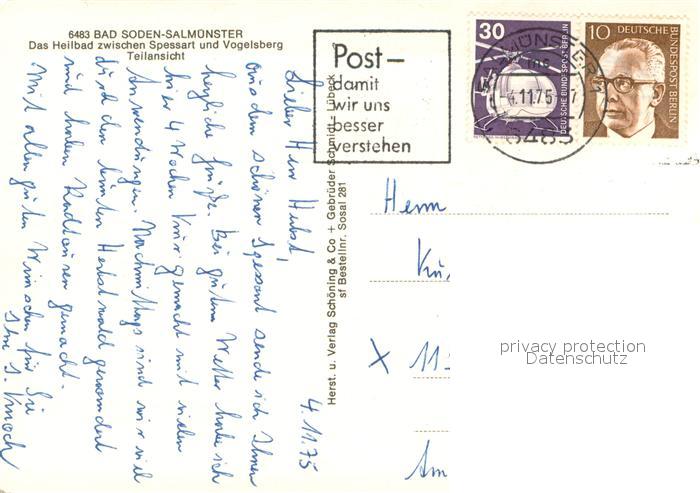 6483 BAD SODEN-SALMÜNSTER
Das Heilbad zwischen Spessart und Vogelsberg
Teilansicht
4.11.75
Lieber Herr Herbst,
aus dem schönen Spessart sende ich Ihnen
herzliche Grüße. Bei gutem Wetter habe ich
hier 4 Wochen Kur gemacht mit vielen
Anwendungen. Nachmittags sind wir viel
durch den bunten Herbstwald gewandert
und haben Radtouren gemacht.
Mit allen guten Wünschen für Sie
Ihr
Herst. u. Verlag Schöning & Co + Gebrüder Schmidt - Lübeck
sf Bestellnr. Sosal 281
Post-
damit
wir uns
besser
verstehen
30
DEUTSCHE BUNDESPOST BERLIN
10
DEUTSCHE
BUNDESPOST BERLIN
4.11.75
6483
Herrn
Ku
x 11
Am
privacy protection
Datenschutz